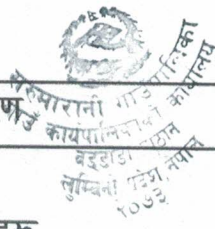 सरुमारानी गाउँपालिका
गाउँ कार्यपालिकाको कार्यालय
बड्डाँडा प्यूठान
लुम्बिनी प्रदेश नेपाल
२०७३